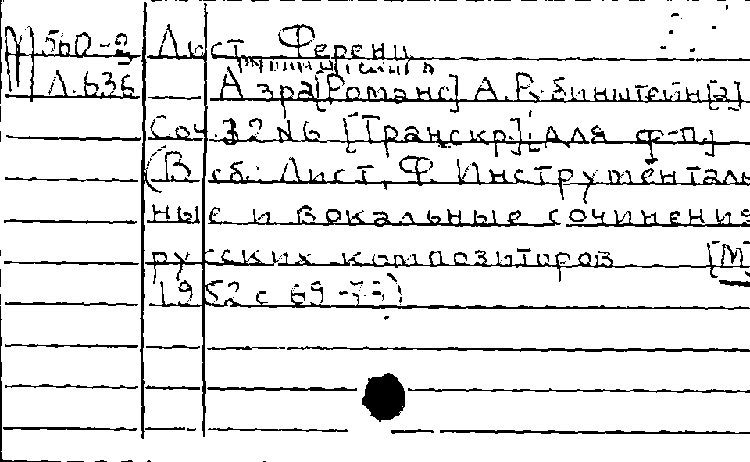 М 560-2 Лист, Ференц
Л.636 Азра [Романс] А. Рубинштейн[а]
Соч. 32 №6 [Транскр.] для ф-п.
(В сб.: Лист, Ф. Инструменталь
ные и вокальные сочинения
русских композиторов [М]
1952 с 69-73)